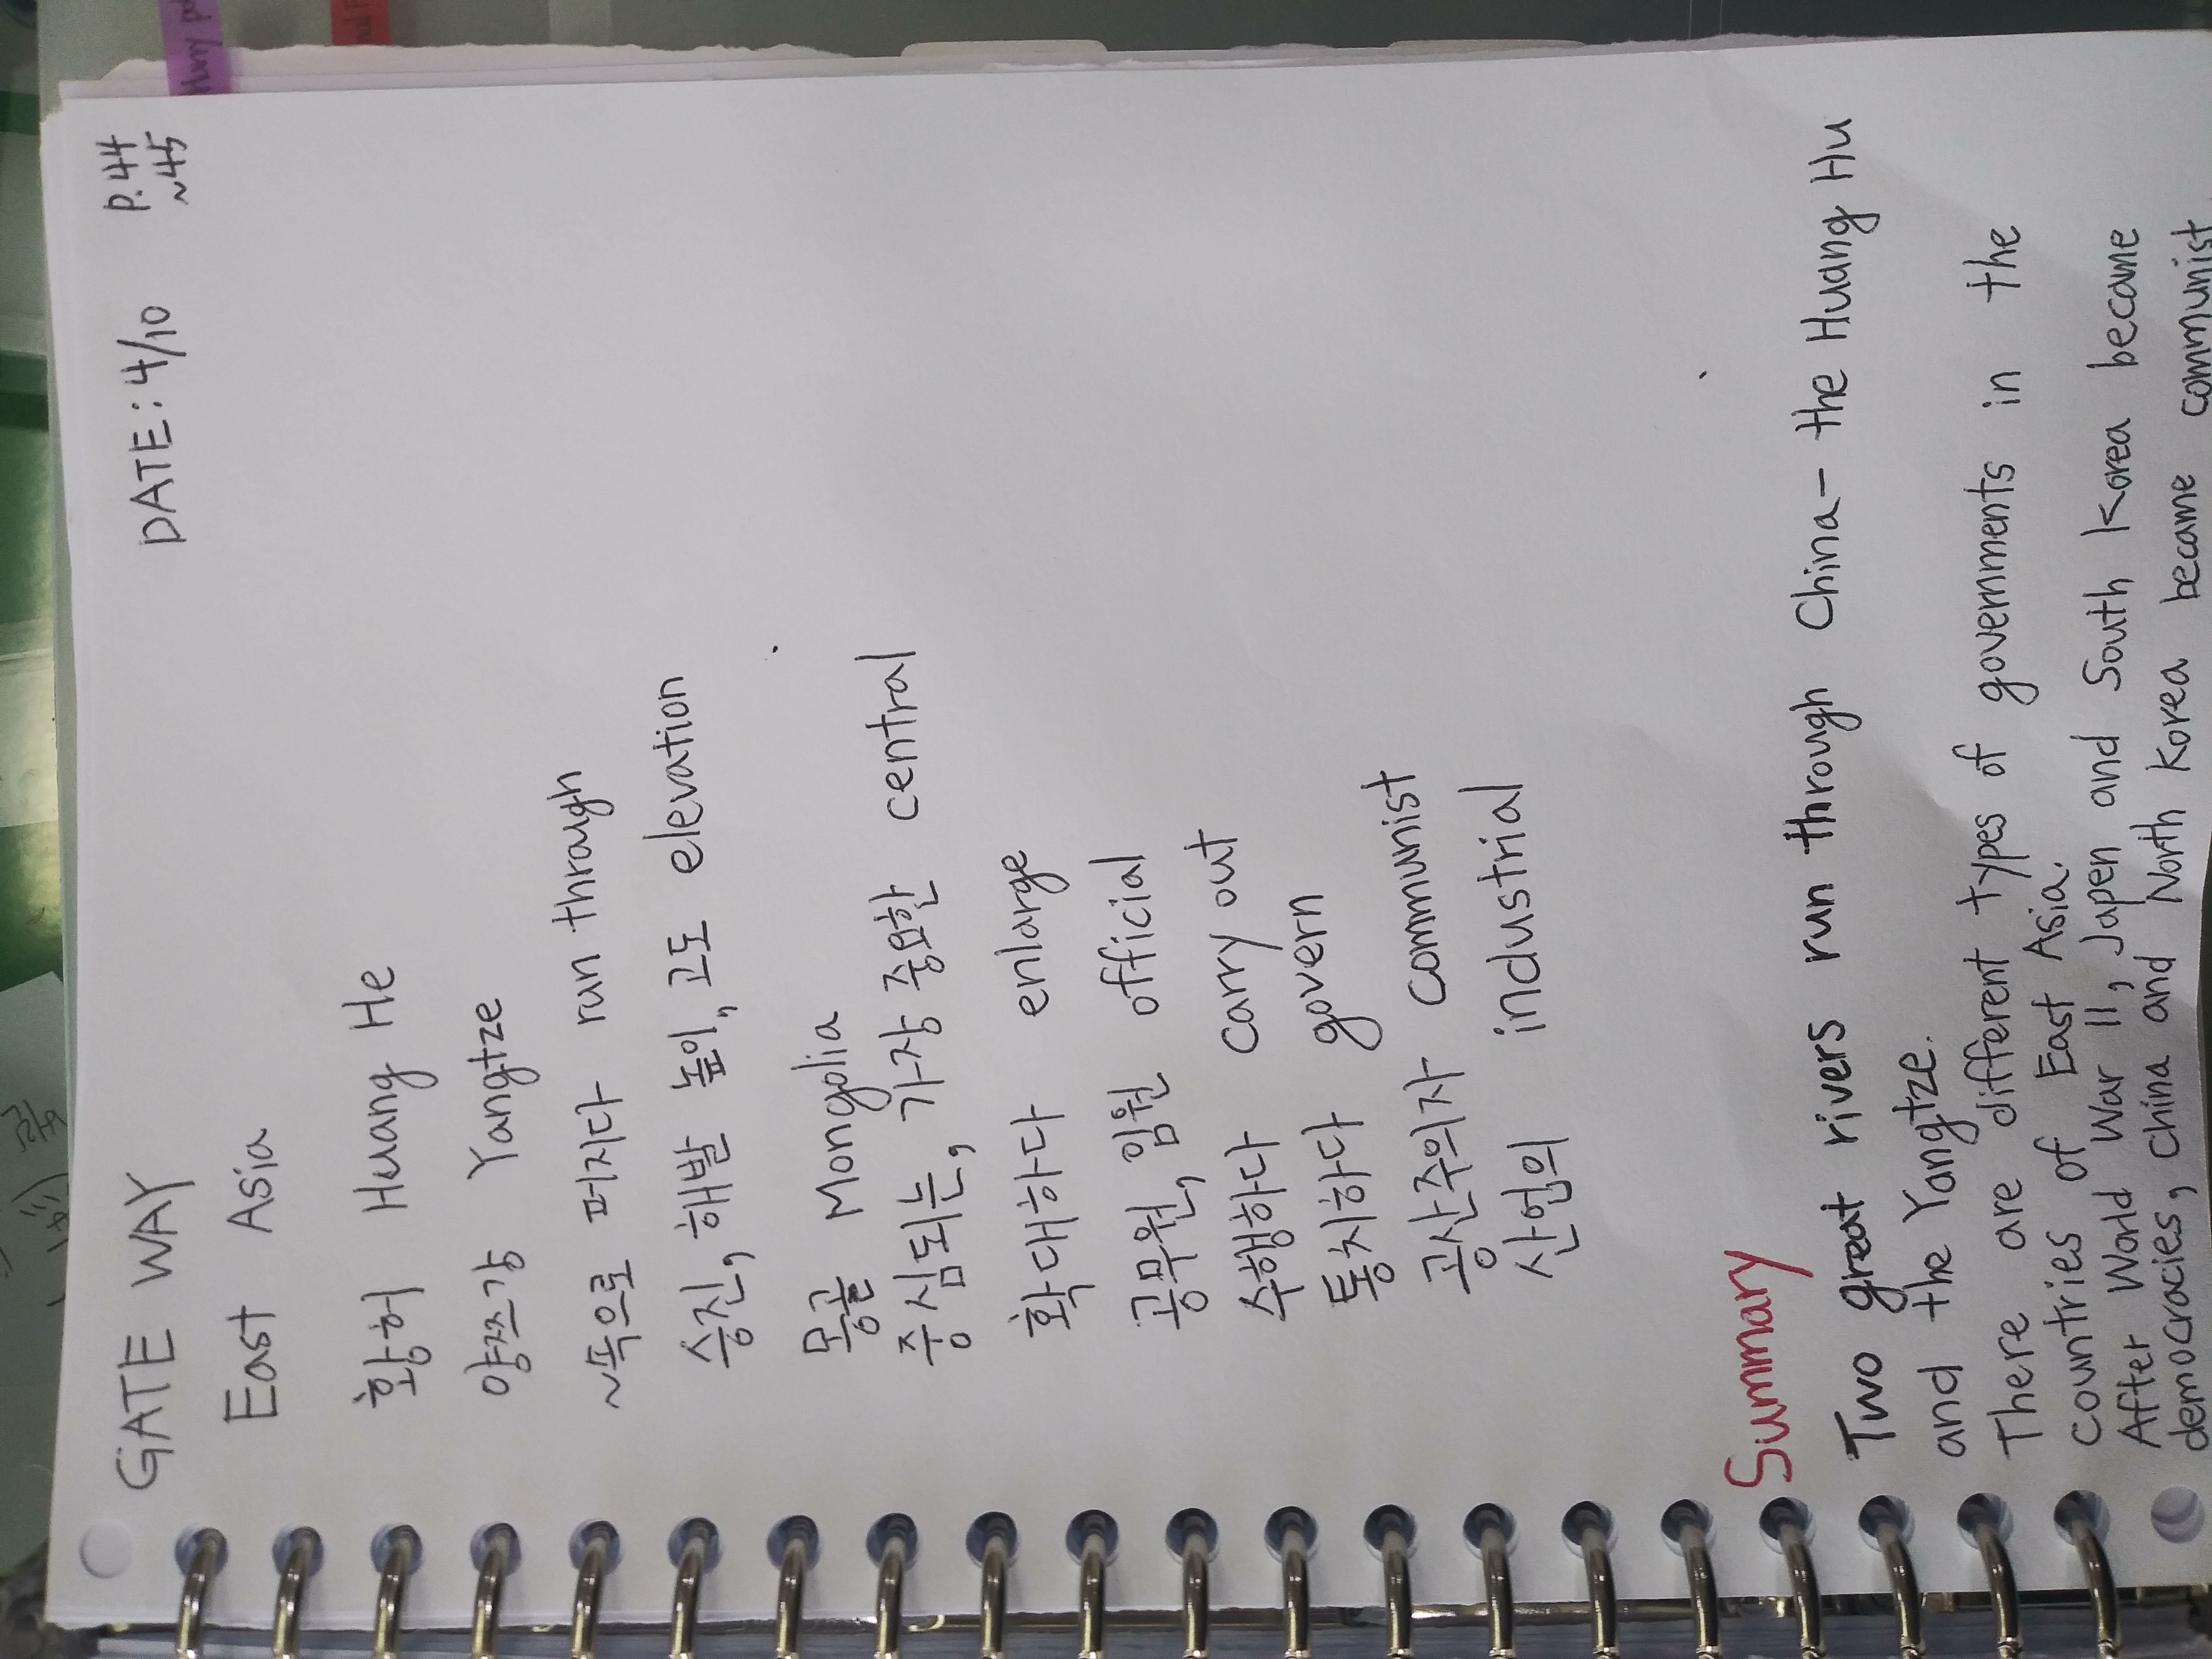 GATE WAY DATE: 4/10 P.44
~45
East Asia
황허 Huang He
양쯔강 Yangtze
~쪽으로 퍼지다 run through
승진, 해발 높이, 고도 elevation
몽골 Mongolia
중심되는, 가장 중요한 central
확대하다 enlarge
공무원, 임원 official
수행하다 carry out
통치하다 govern
공산주의자 communist
산업의 industrial
Summary
Two great rivers run through China- the Huang Hu
and the Yangtze.
There are different types of governments in the
countries of East Asia.
After World War II, Japen and South Korea became
democracies, China and North Korea became communist